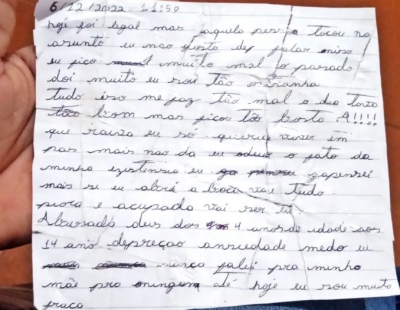 6/12/2022 11:50
hoje foi legal mas aquela pessoa tocou no
asunto eu não gosto de falar niso
eu fico muito mal o pasado
doi muito eu sou tão estranha
tudo iso me faz tão mal o dia tava
tão bom mas ficou tão bosta :4!!!!
que raiva eu só queria viver em
pas mais não da eu odeio o fato da
minha existensia eu ja pensei
mais se eu abri a boca vai tudo
piora e acusada vai ser eu
Abusada dus dos 4 anos de idade aos
14 ano depreçao ansiedade medo eu
nunca falei pra minha
mãe pra ninguem até hoje eu sou muito
fraca